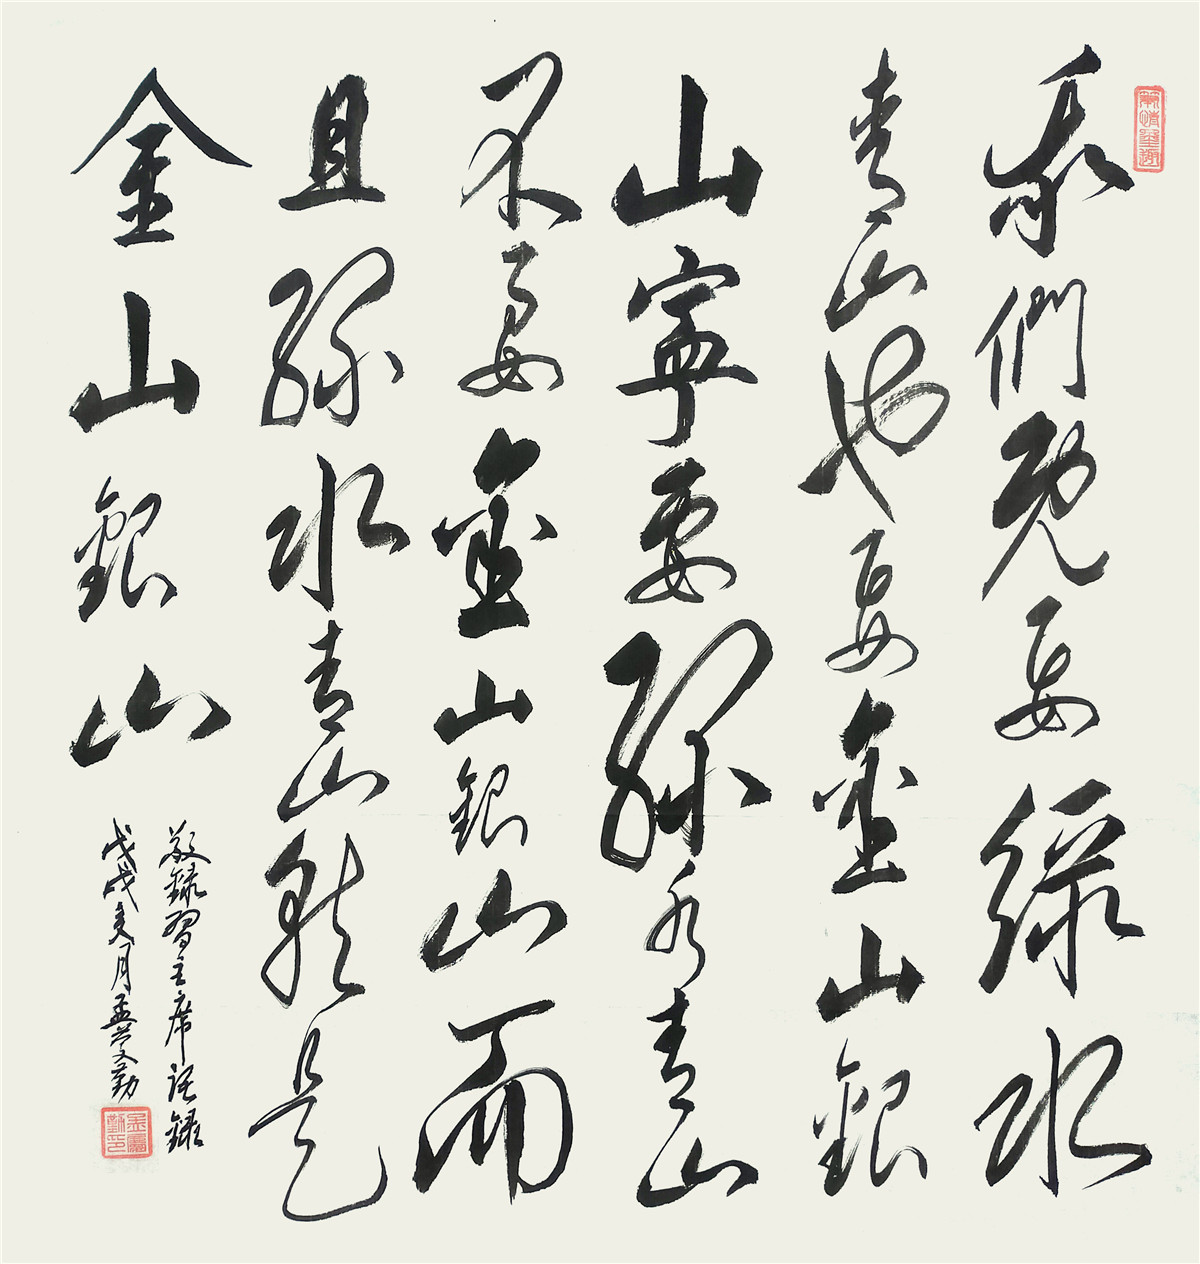 筆情墨趣
我們既要綠水
青山也要金山銀
山寧要綠水青山
不要金山銀山而
且綠水青山就是
金山銀山
敬録習主席語録
戊戌夏月孟慶勤
孟慶勤印